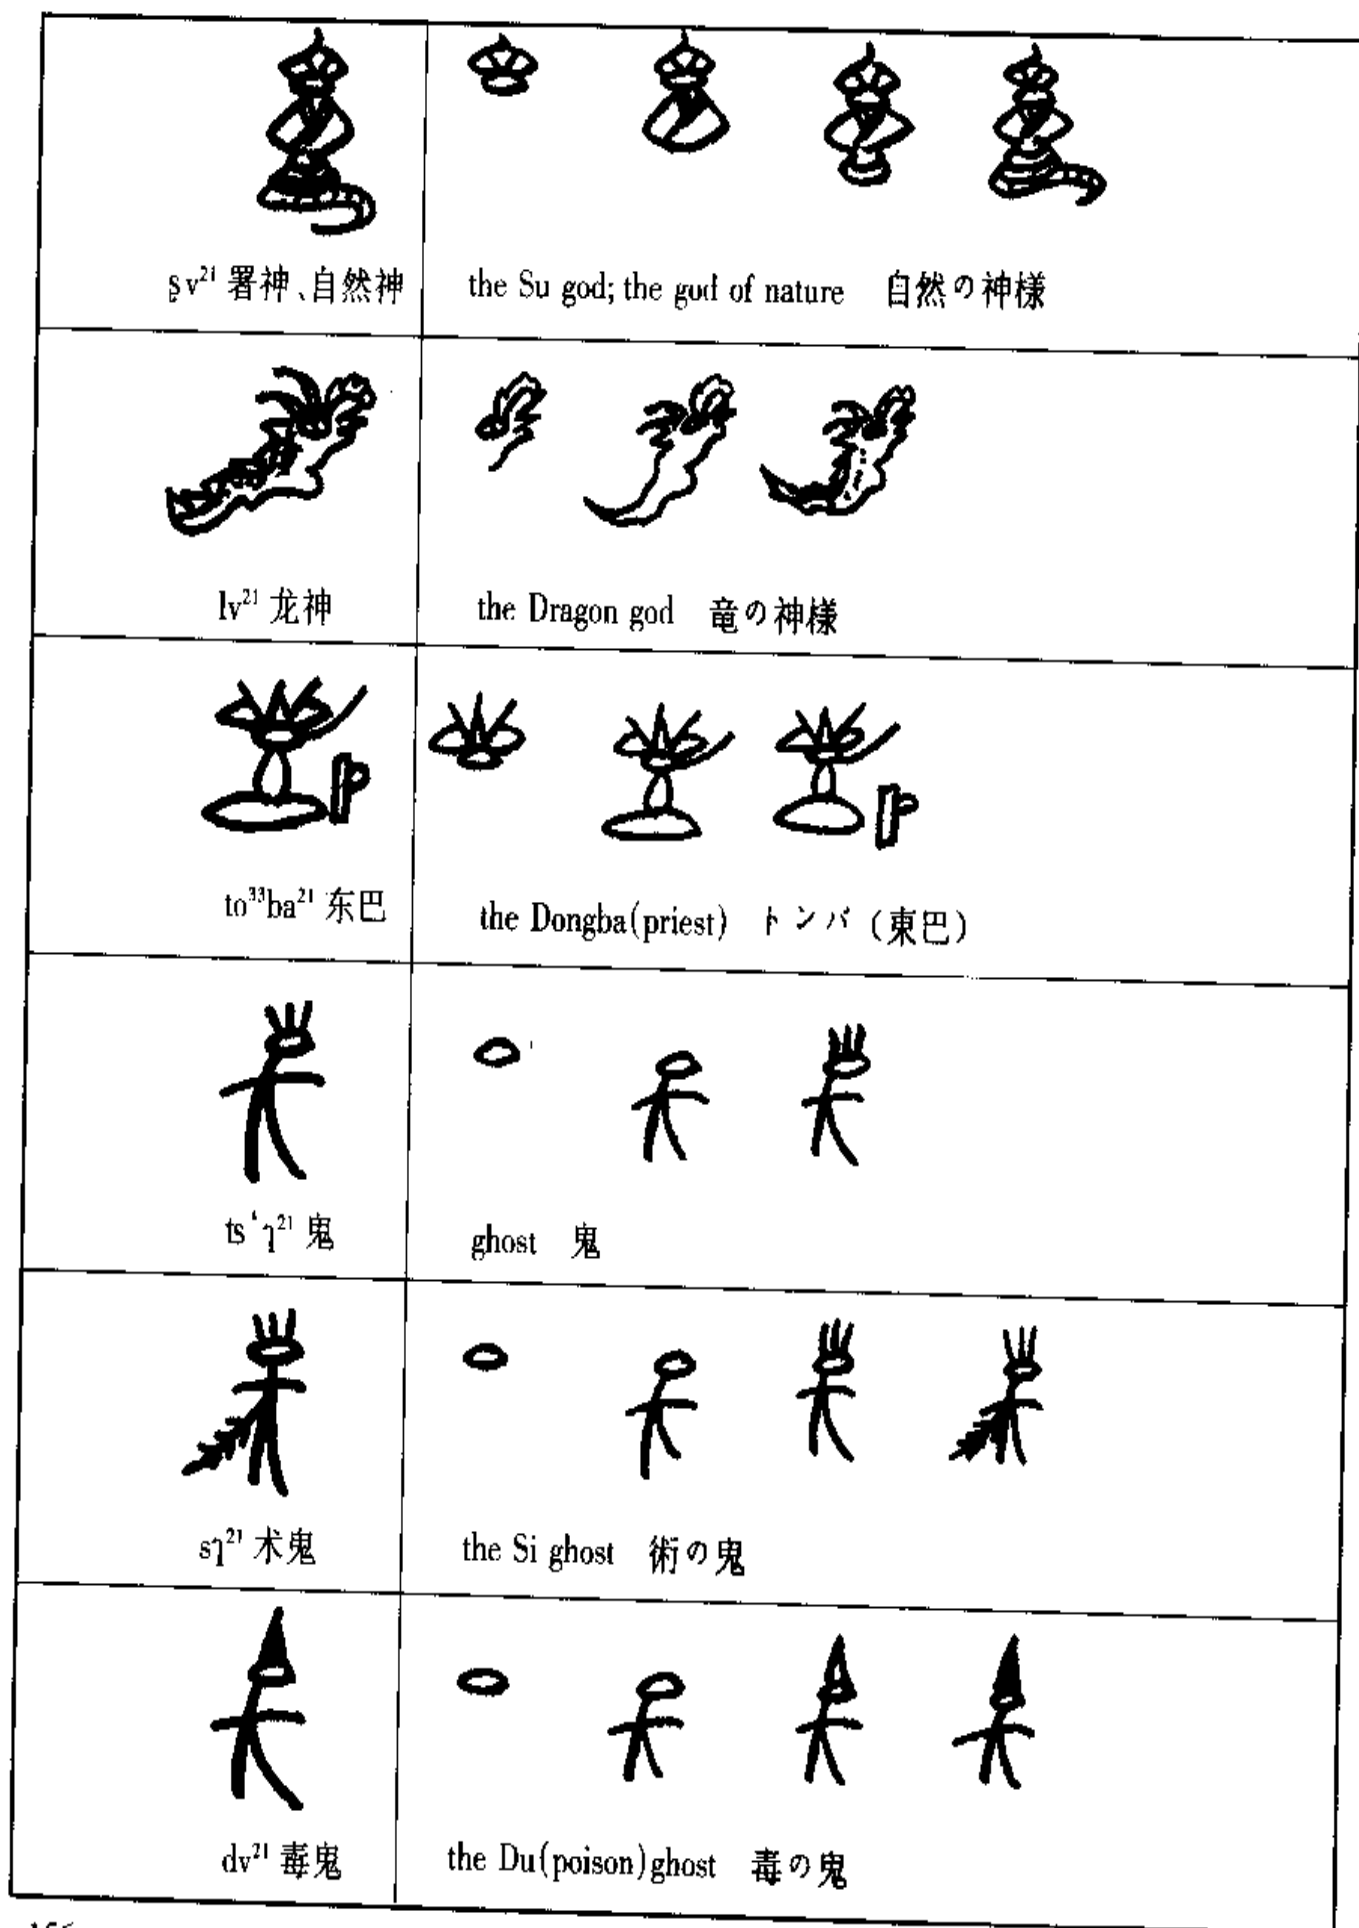 ʂv²¹ 署神、自然神
the Su god; the god of nature 自然の神様
lv²¹ 龙神
the Dragon god 竜の神様
to³³ba²¹ 东巴
the Dongba(priest) トンバ（東巴）
ts‘ʅ²¹ 鬼
ghost 鬼
sʅ²¹ 术鬼
the Si ghost 術の鬼
dv²¹ 毒鬼
the Du(poison)ghost 毒の鬼